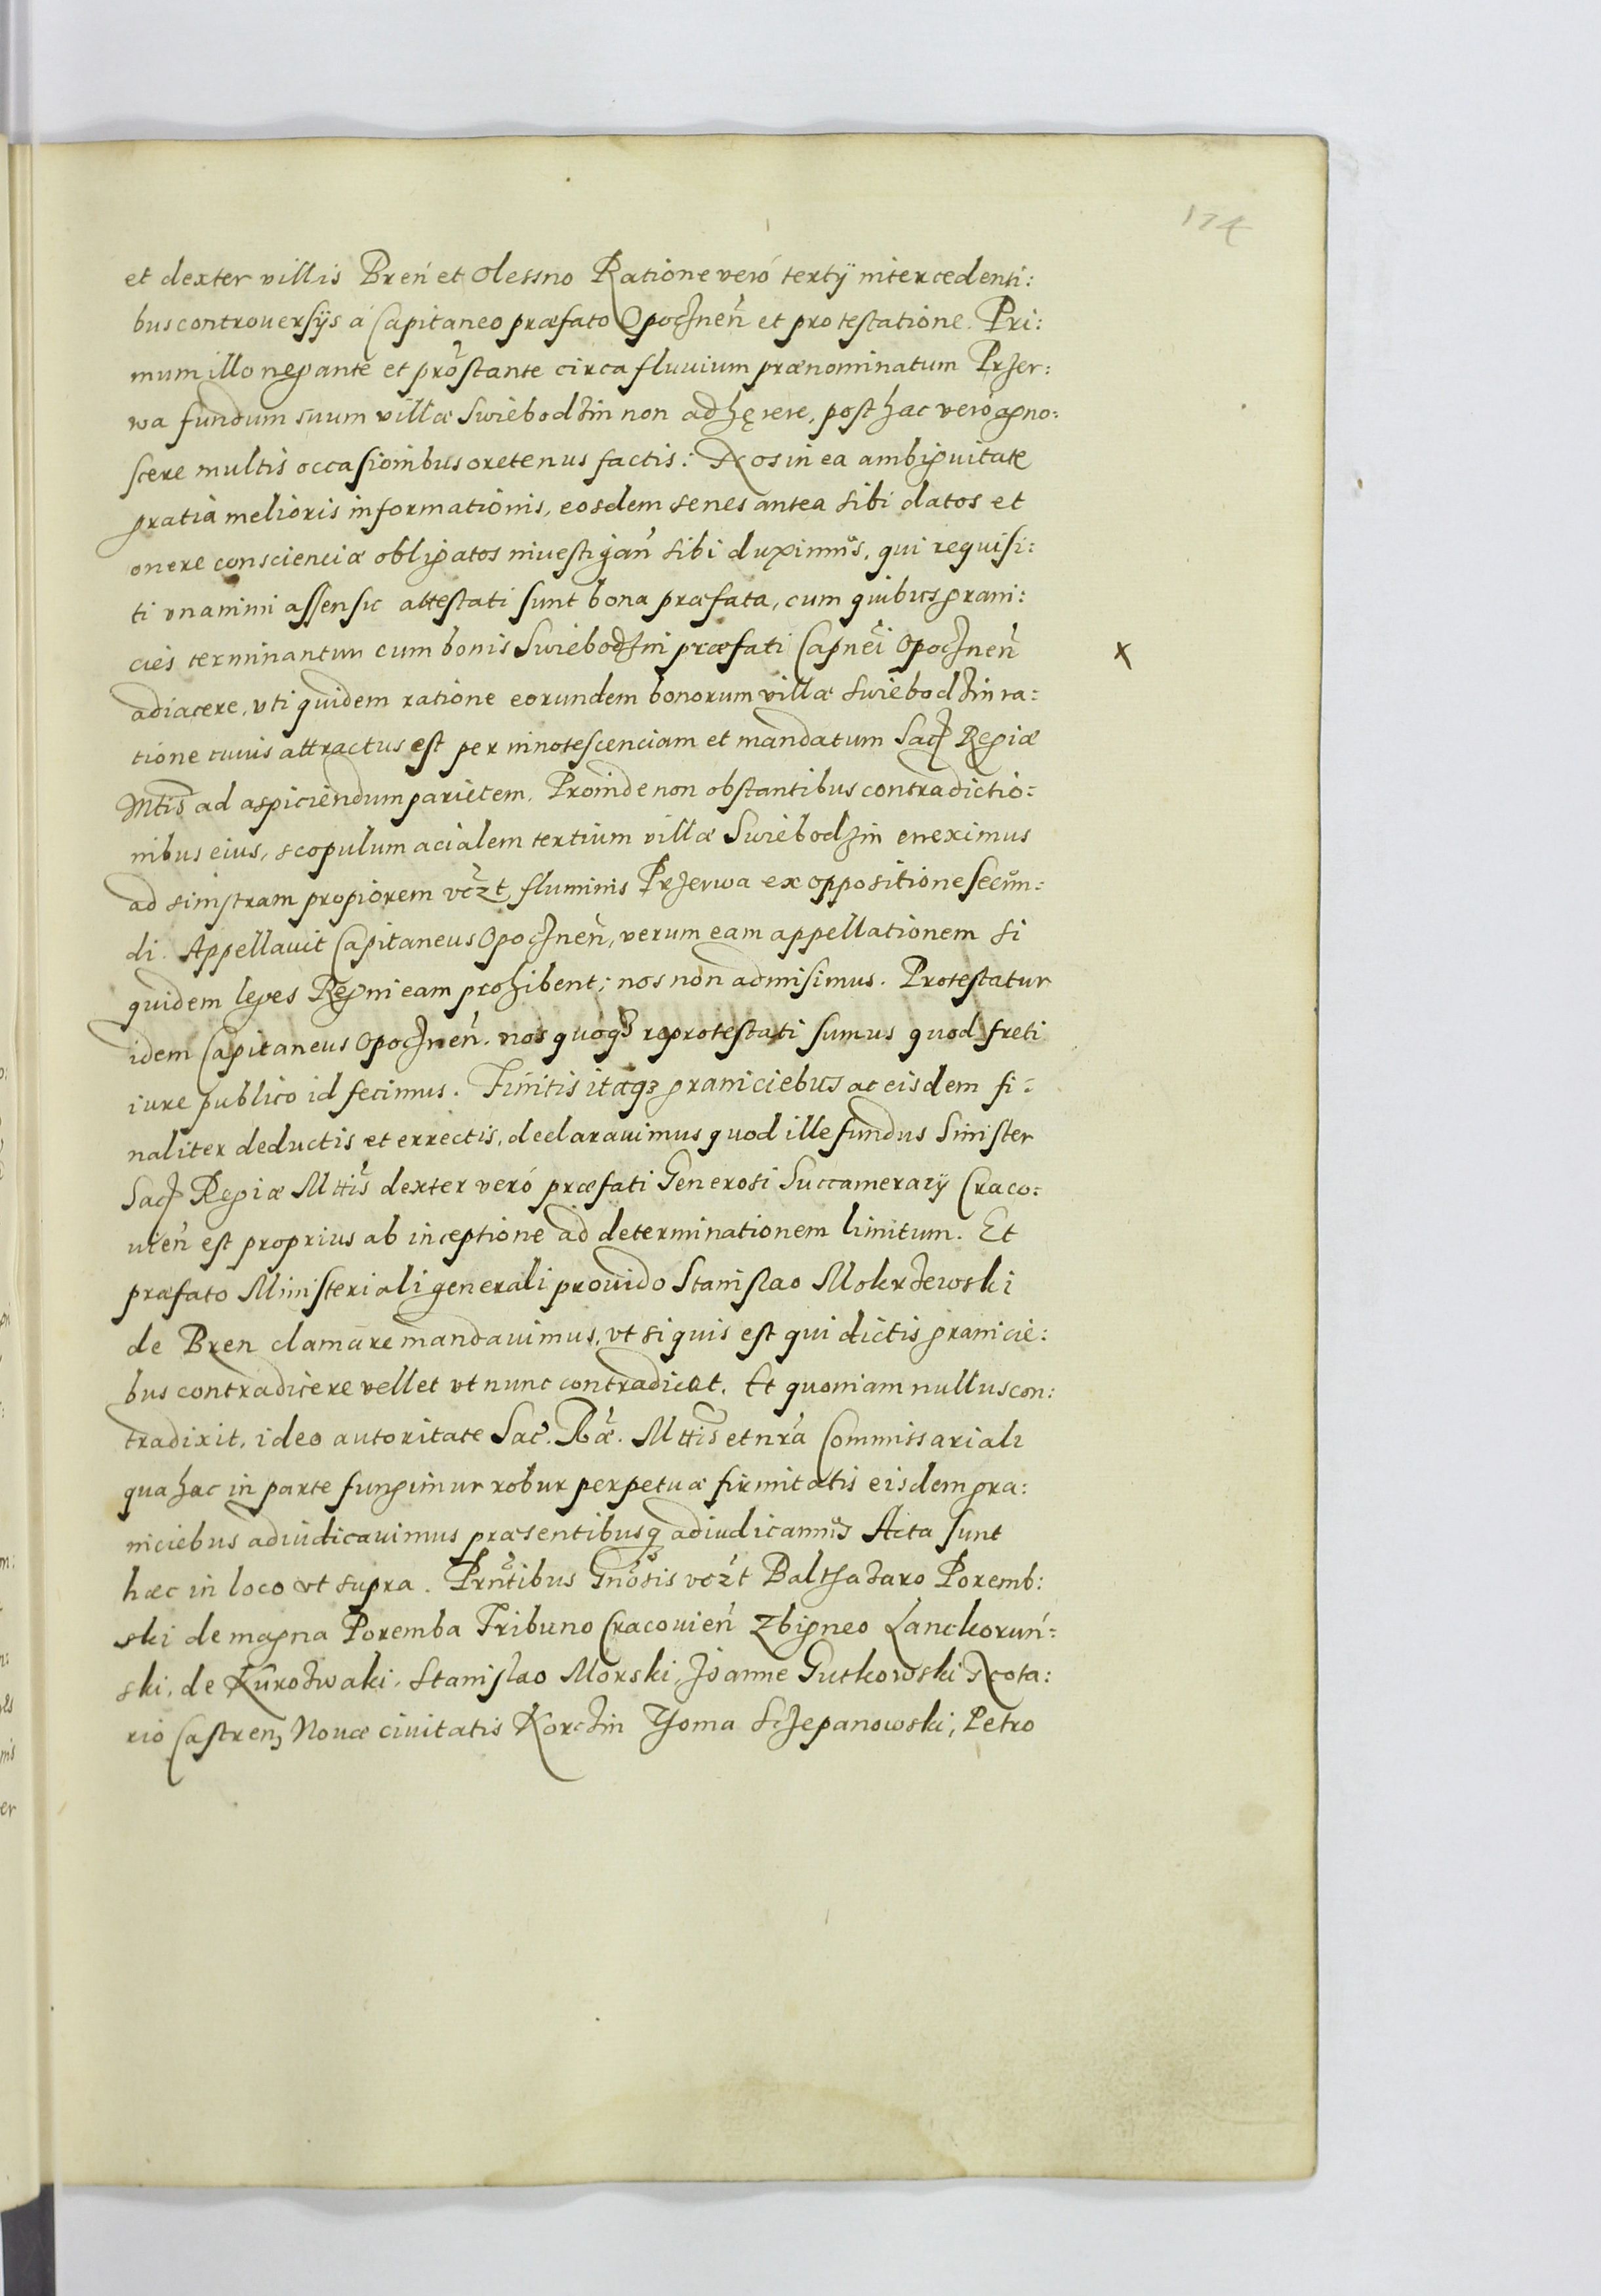 174
et dexter villis Breń et Olessno Ratione veró tertÿ intercedenti:
bus controuersÿs á Capitaneo præfato Opocznen̄ et protestatione. Pri:
mum illo negante et pro͂stante circa fluuium prænominatum Przer:
wa fundum suum villæ Swiebodzin non adhęrere, post hac veró agno:
scere multis occasionibus oretenus factis: Nos in ea ambiguitate
gratia melioris informationis, eosdem senes antea sibi datos et
onere conscienciæ obligatos inuestigan̄ sibi duximus, qui requisi:
ti vnanimi assensu attestati sunt bona præfata, cum quibus grani:
cies terminantur cum bonis Swiebodzin præfati Capnei Opocznen̄
x
adiacere, vti quidem ratione eorundem bonorum villæ Swiebodzin ra:
tione cuius attractus est per innotescenciam et mandatum Sacr Regiæ
Mtis ad aspiciendum parietem. Proinde non obstantibus contradictio:
nibus eius, scopulum acialem tertium villæ Swiebodzin ereximus
ad sinistram propiorem vczt fluminis Przerwa ex oppositione secun:
di. Appellauit Capitaneus Opocznen̄, verum eam appellationem si
quidem leges Regni eam prohibent; nos non admisimus. Protestatur
idem Capitaneus Opocznen̄. nos quoqz reprotestati sumus quod freti
iure publico id fecimus. Finitis itaqz graniciebus ac eisdem fi:
naliter deductis et errectis, declarauimus quod ille fundus Sinister
Sacr Regiæ Mttis dexter veró præfati Generosi Succamerarÿ Craco:
uien̄ est proprius ab inceptione ad determinationem limitum. Et
præfato Ministeriali generali prouido Stanislao Mokrzewski
de Bren clamare mandauimus, vt si quis est qui dictis granicie:
bus contradicere vellet vt nunc contradicat. Et quoniam nullus con:
tradixit, ideo autoritate Sac. Ræ. Mttis et nr̄a Commissariali
qua hac in parte fungimur robur perpetuæ firmitatis eisdem gra:
niciebus adiudicauimus præsentibusq adiudicamus Acta sunt
hæc in loco vt supra. Prn̄tibus Gnosis vczt Baltsazaro Poremb:
ski de magna Poremba Tribuno Cracouien̄ Zbigneo Lanckoruń:
ski, de Kurozwaki, Stanislao Morski, Joanne Gutkowski Nota:
rio Castren, Nouæ ciuitatis Korczin Thoma Sczepanowski, Petro